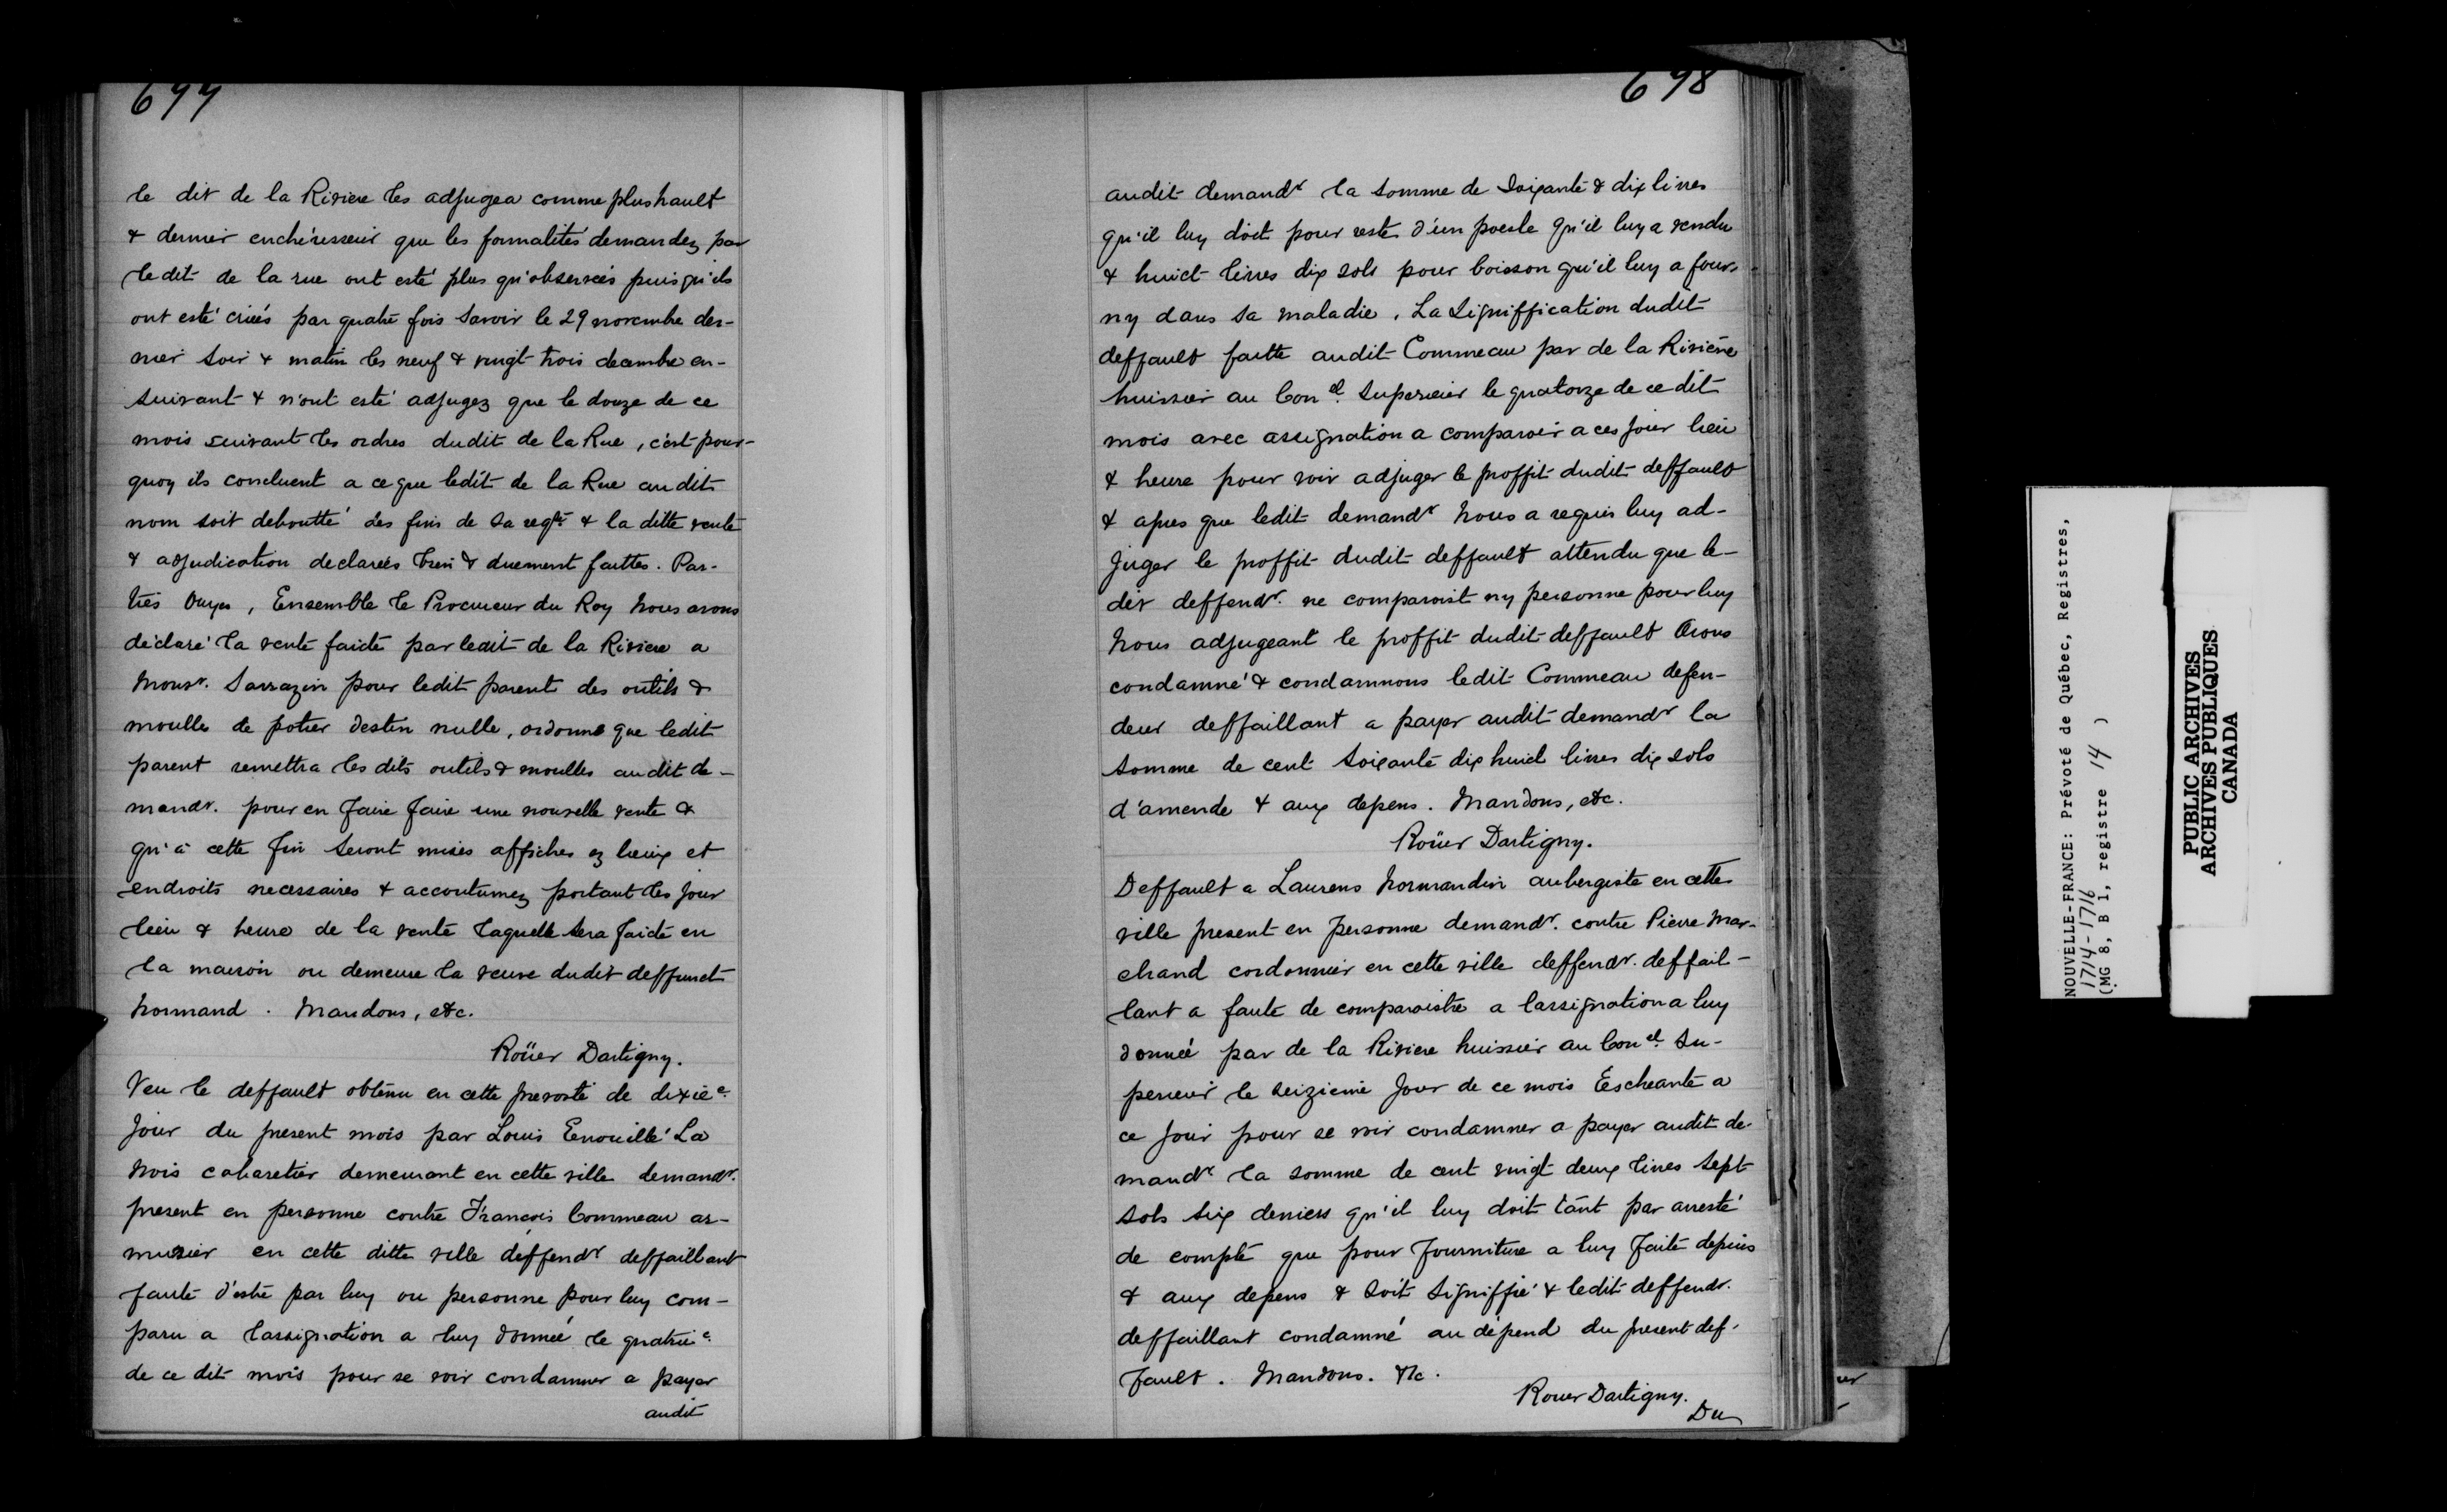 697
le dit de la Riviere les adjugea comme plus hault
& dernier enchérisseur que les formalités demandez par
ledit de la rue ont esté plus qu'observées puisqu'ils
ont esté criées par quatre fois savoir le 29 novembre der-
nier soir & matin les neuf & vingt trois decembre en-
suivant & n'ont esté adjugez que le douze de ce
mois suivant les ordres dudit de la Rue, c'est pour-
quoy ils concluent a ce que ledit de la Rue audit
nom soit deboutté des fins de sa reqte & la ditte vente
& adjudication declarées bien & duement faittes. Par-
ties Ouyes, Ensemble le Procureur du Roy Nous avons
déclaré la vente faicte par ledit de la Riviere a
Monsr. Sarrazin pour ledit parent des outils &
moulles de potier destin nulle, ordonné que ledit
parent remettra les dits outils & moulles audit de-
mandr. pour en faire faire une nouvelle vente &
qu'à cette fin seront mises affiches ez lieux et
endroits necessaires & accoutumez portant les jour
lieu & heure de la vente laquelle sera faicte en
la maison ou demeure la veuve dudit deffunct
Normand. Mandons, etc.
Roüer Dartigny.
Veu le deffault obtenu en cette prevosté de dixiee.
jour du present mois par Louis Enouillé La
Nois cabaretier demeurant en cette ville demandr.
present en personne contre François Commeau ar-
murier en cette ditte ville deffendr deffaillant
faute d'estre par luy ou personne pour luy com-
paru a l'assignation a luy donnée le quatrie.
de ce dit mois pour se voir condamner a payer
audit
698
audit demandr la somme de soixante & dix livres
qu'il luy doit pour reste d'un poesle qu'il luy a vendu
& huict livres dix sols pour boisson qu'il luy a four-
ny dans sa maladie. La Signiffication dudit
deffault faitte audit Commeau par de la Riviére
huissier au Conel. Superieur le quatorze de ce dit
mois avec assignation a comparoir a ces jour lieu
& heure pour voir adjuger le proffit dudit deffault
& apres que ledit demandr Nous a requis luy ad-
juger le proffit dudit deffault attendu que le-
dit deffendr. ne comparoist ny personne pour luy
Nous adjugeant le proffit dudit deffault Avons
condamné & condamnons ledit Commeau defen-
deur deffaillant a payer audit demandr la
somme de cent soixante dix huict livres dix sols
d'amende & aux depens. Mandons, etc.
Roüer Dartigny.
Deffault a Laurens Normandin aubergiste en cette
ville present en personne demandr. contre Pierre Mar-
chand cordonnier en cette ville deffendr. deffail-
lant a faute de comparoistre a lassignation a luy
donneé par de la Riviere huissier au Conel. Su-
perieur le seizieme jour de ce mois Escheante a
ce jour pour se voir condamner a payer audit de-
mandr la somme de cent vingt deux livres sept
sols six deniers qu'il luy doit tant par arresté
de compte que pour fourniture a luy faite depuis
& aux depens & soit signiffié & ledit deffendr.
deffaillant condamné au dépend du present def-
fault. Mandons. etc.
Rouer Dartigny.
Du
NOUVELLE-FRANCE: Prévoté de Québec, Registres,
1714-1716
(MG 8, B 1, registre 14 )
PUBLIC ARCHIVES
ARCHIVES PUBLIQUES
CANADA